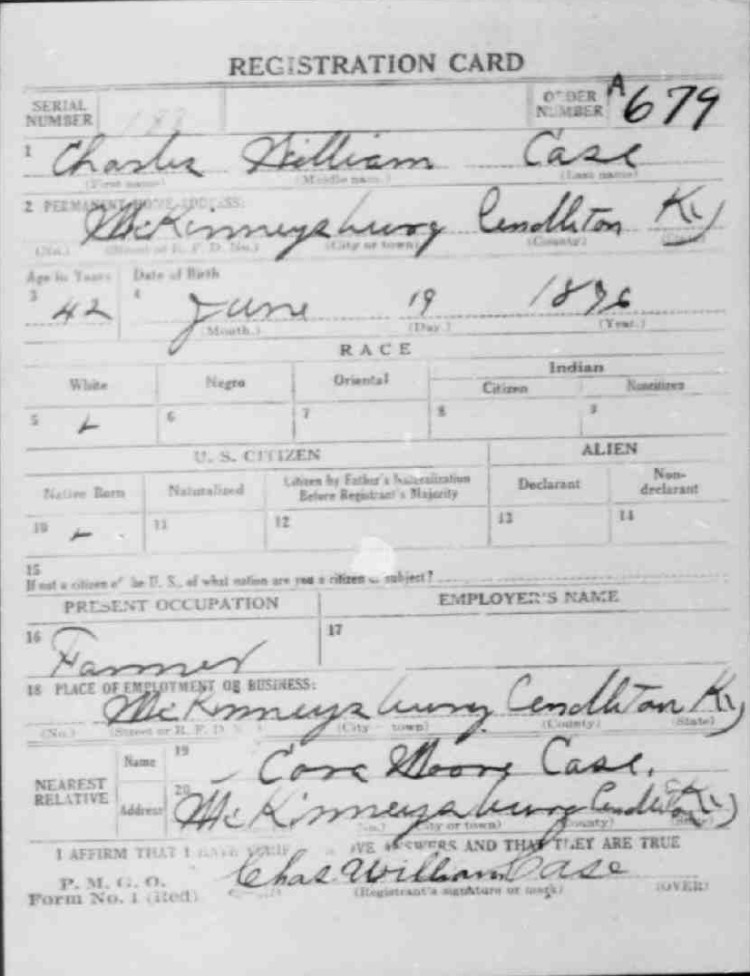 REGISTRATION CARD
SERIAL NUMBER
ORDER NUMBER A 679
1 Charles William Case
(First name) (Middle name) (Last name)
2 PERMANENT HOME ADDRESS:
McKinneysburg Pendleton Ky
(No.) (Street or R. F. D. No.) (City or town) (County) (State)
Age in Years Date of Birth
3 42 4 June 19 1876
(Month.) (Day.) (Year.)
RACE
White Negro Oriental Indian
Citizen Noncitizen
5 6 7 8 9
U. S. CITIZEN ALIEN
Native Born Naturalized Citizen by Father's Naturalization Before Registrant's Majority Declarant Non-declarant
10 11 12 13 14
15
If not a citizen of the U. S., of what nation are you a citizen or subject?
PRESENT OCCUPATION EMPLOYER'S NAME
16 Farmer 17
18 PLACE OF EMPLOYMENT OR BUSINESS:
McKinneysburg Pendleton Ky
(No.) (Street or R. F. D. (City town) (County) (State)
NEAREST RELATIVE
Name 19 Cora Moore Case.
Address 20 McKinneysburg Pendleton Ky
(No.) (City or town) (County) (State)
I AFFIRM THAT I HAVE VERIF VE ANSWERS AND THAT THEY ARE TRUE
P. M. G. O.
Form No. 1 (Red)
Chas William Case
(Registrant's signature or mark) (OVER)